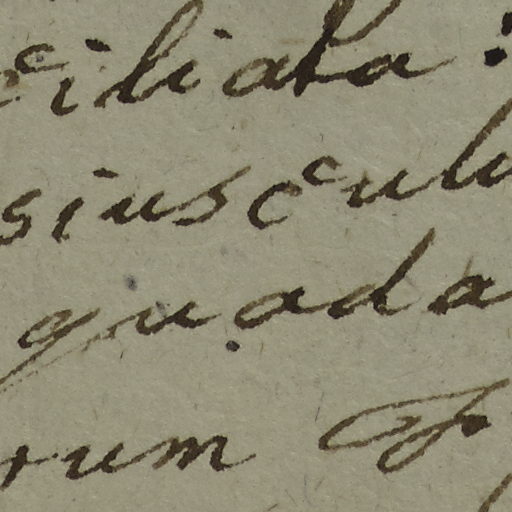 ciliata:
siuscul
quada
rum